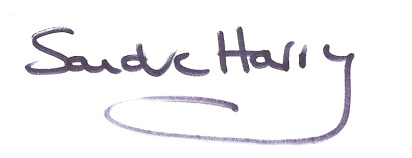 Sandra Harry